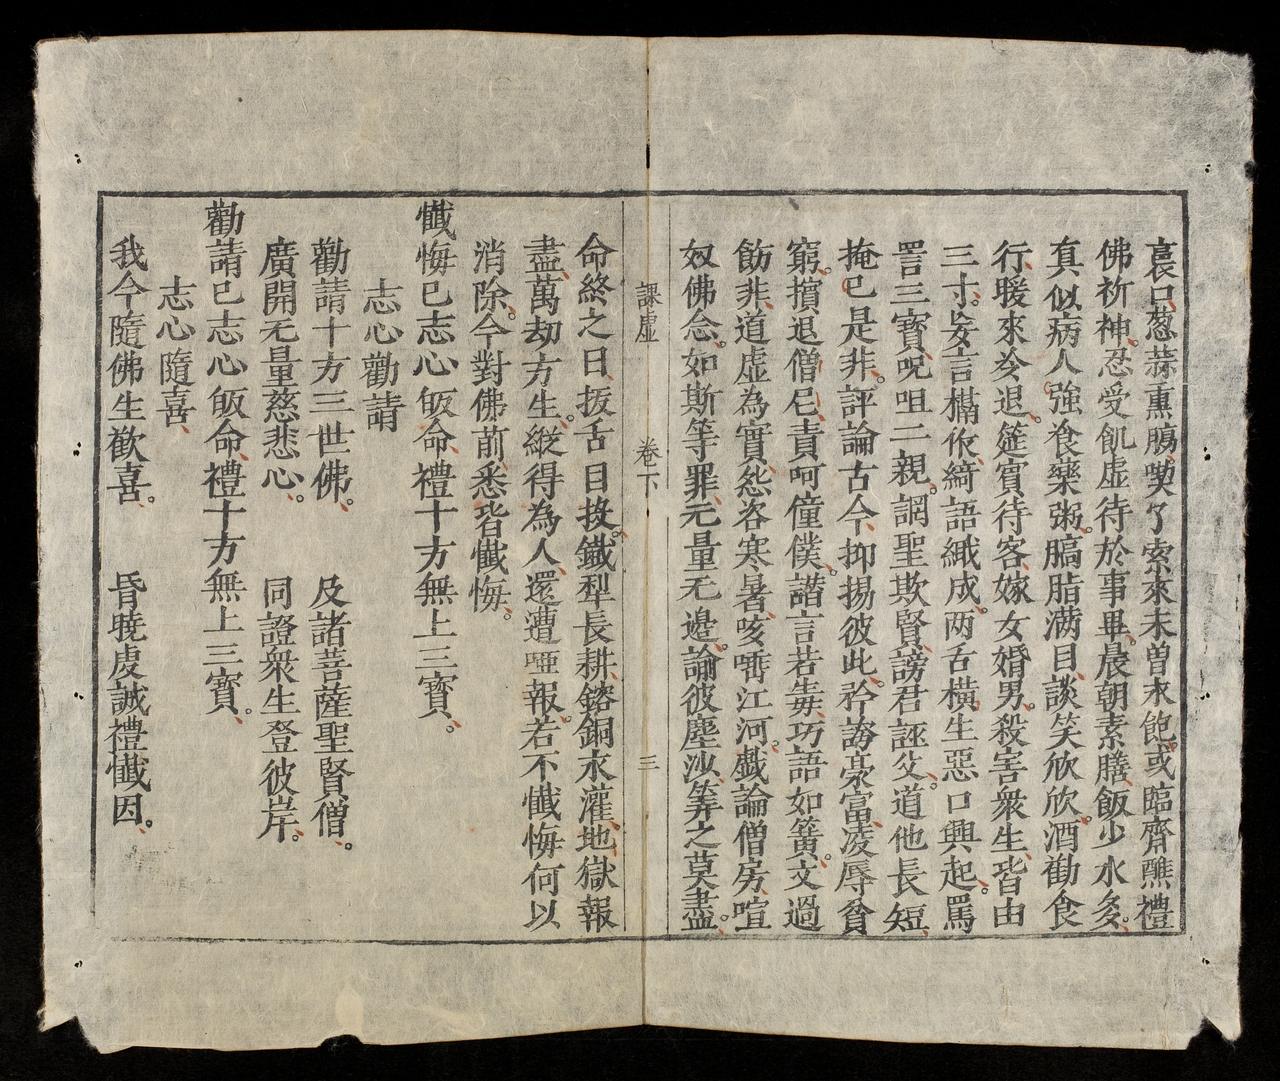 裹口。葱蒜熏膓。嘆了索來。未曽求飽。或臨齊醮禮
佛祈神。忍受飢虚。待於事畢。晨朝素膳。飯少水多。
真似病人。強飡藥粥。膓脂满目。談笑欣欣。酒勸食
行。暖來冷退。筵賓待客。嫁女婚男。殺害衆生。皆由
三寸。妄言構依。綺語織成。两舌橫生。惡口興起。罵
詈三寳。呪咀二親。謿聖欺賢。謗君誣父。道他長短。
掩已是非。評論古今。抑揚彼此。矜誇豪富。凌辱貧
窮。擯退僧尼。責呵僮僕。譖言若毒。巧語如簧。文過
飭非。道虚為實。怨咨寒暑。咳唾江河。戯論僧房。喧
奴佛念。如斯等罪。无量无邉。諭彼塵沙。筭之莫盡。
課虚　卷下　三
命終之日。抜舌目投。鐵犁長耕。鎔銅永灌。地獄報
盡。萬劫方生。縦得為人。還遭啞報。若不懺悔何以
消除。今對佛前悉皆懺悔。
懺悔已志心皈命禮十方無上三寳。
志心勸請
勸請十方三世佛。　及諸菩薩聖賢僧。
廣開无量慈悲心。　同證衆生登彼岸。
勸請已志心皈命禮十方無上三寳。
志心隨喜
我今隨佛生歡喜。　昏曉虔誠禮懺因。